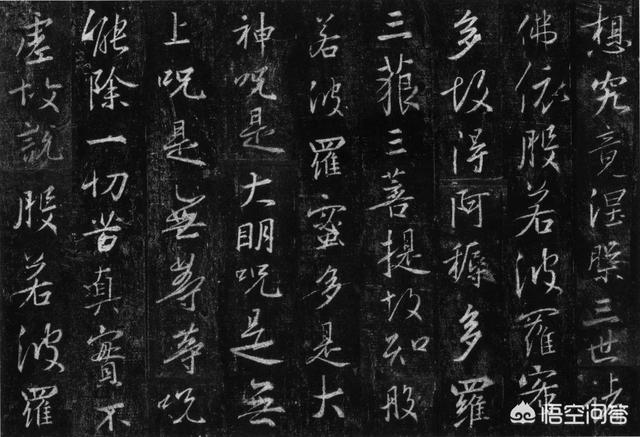 想究竟涅槃三世諸
佛依般若波羅蜜
多故得阿耨多羅
三藐三菩提故知般
若波羅蜜多是大
神咒是大明咒是無
上咒是無等等咒
能除一切苦真實不
虛故說般若波羅
悟空问答